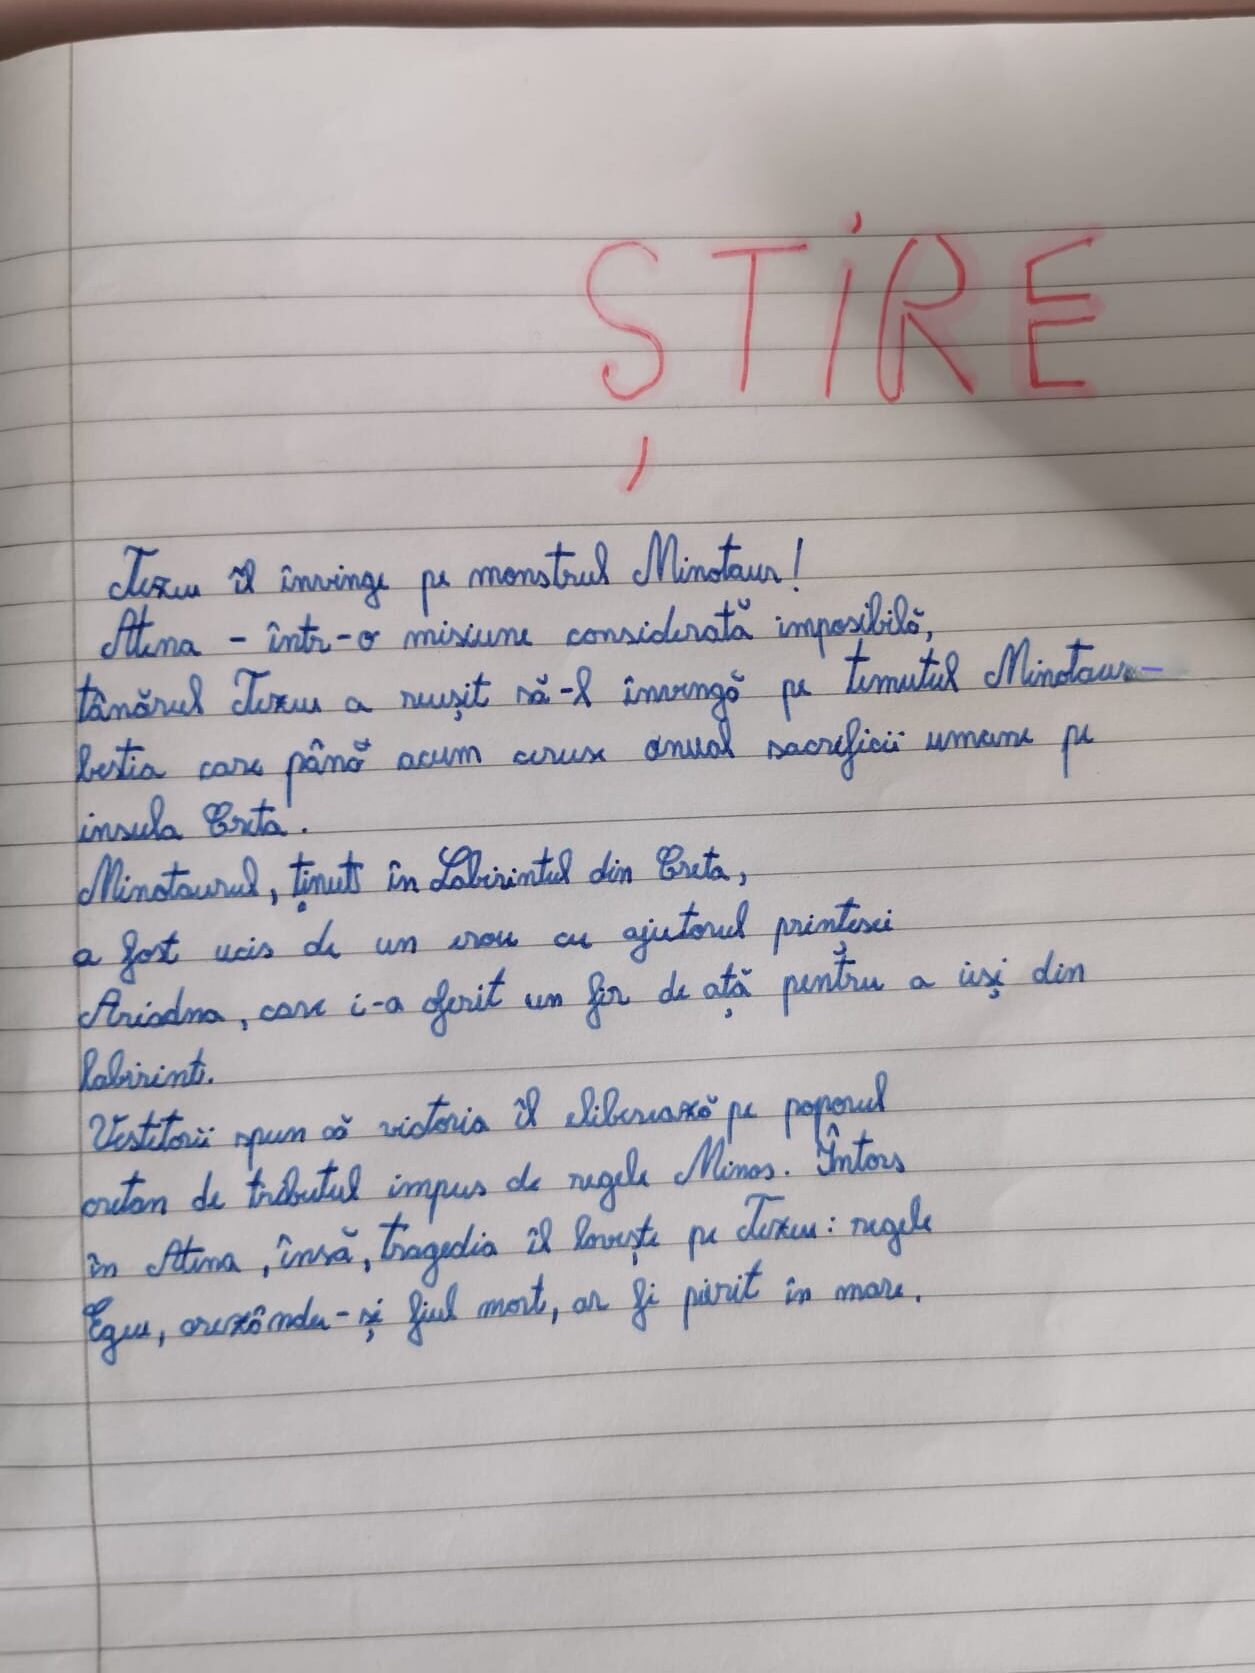 ȘTIRE
Tezeu îl învinge pe monstrul Minotaur!
Atena - într-o misiune considerată imposibilă,
tânărul Tezeu a reușit să-l învingă pe temutul Minotaur -
bestia care până acum ceruse anual sacrificii umane pe
insula Creta.
Minotaurul, ținut în Labirintul din Creta,
a fost ucis de un erou cu ajutorul prințesei
Ariadna, care i-a oferit un fir de ață pentru a ieși din
labirint.
Vestitorii spun că victoria îl eliberează pe poporul
cretan de tributul impus de regele Minos. Întors
în Atena, însă, tragedia îl lovește pe Tezeu: regele
Egeu, crezându-și fiul mort, ar fi pierit în mare.